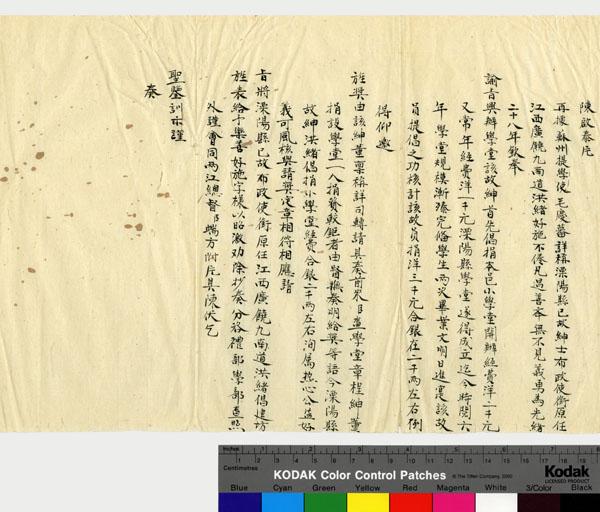 陳啟泰片
再據蘇州提學使毛慶蕃詳稱溧陽縣已故紳士布政使銜原任
江西廣饒九南道洪緒好施不倦凡遇善舉無不見義勇為光緒
二十八年欽奉
諭旨興辦學堂該故紳首先倡捐本邑小學堂開辦經費洋一千元
又常年經費洋一千元溧陽縣學堂遂得成立迄今時閱六
年學堂規模漸臻完備學生兩次畢業文明日進寔該故
員提倡之功核計該故員捐洋三千元合銀在二千兩左右例
得仰邀
旌獎由該紳董稟稱詳司轉請具奏前來臣查學堂章程紳董
捐設學堂一人捐資較鉅者由督撫奏明給獎等語今溧陽縣
故紳洪緒倡捐小學堂經費合銀二千兩左右洵屬熱心公益好
義可風核與請獎定章相符相應請
旨將溧陽縣已故布政使銜原任江西廣饒九南道洪緒倡建坊
旌表給予樂善好施字樣以昭激勸除抄奏分咨禮部學部查照
外謹會同兩江總督臣端方附片具陳伏乞
聖鑒訓示謹
奏
Inches
Centimetres
KODAK Color Control Patches
© The Tiffen Company, 2000
Kodak
LICENSED PRODUCT
Blue Cyan Green Yellow Red Magenta White 3/Color Black